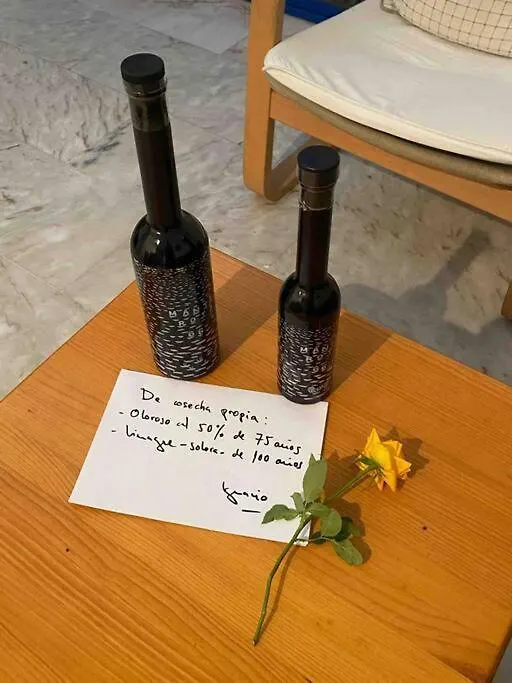 De cosecha propia:
- Oloroso al 50% de 75 años
- Vinagre - solera - de 100 años
Ignacio